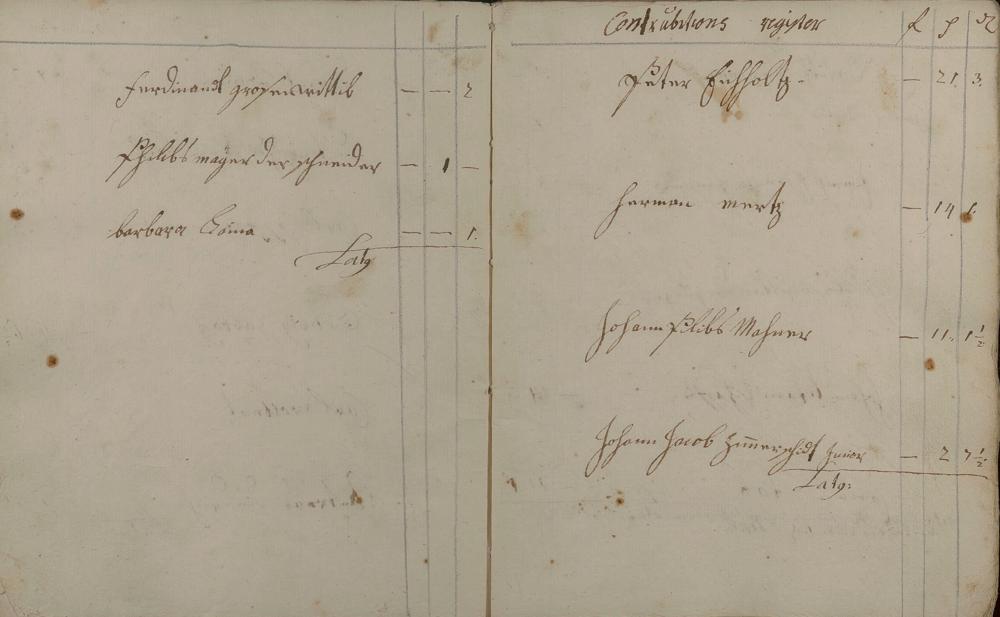 Ferdinandt grosen wittib — — 2
Philibs mayer der schneider — 1 —
barbara — — 1.
Latg
Contrubitions register f p
Peter Eichholtz — 21. 3.
Herman mertz — 14 1.
Johann Philibs Mahner — 11. 1 1/2
Johann Jacob Zimmerschidt Junior — 2 7 1/2
Latg.